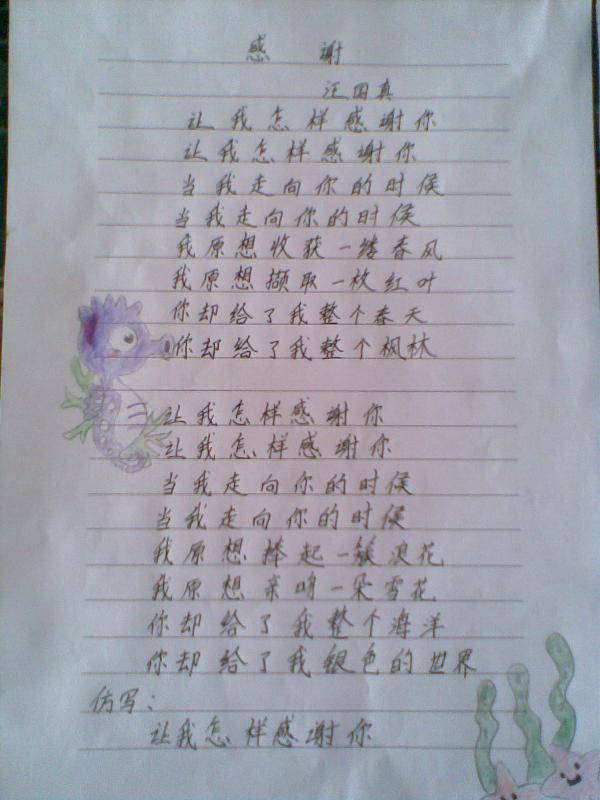 感谢
汪国真
让我怎样感谢你
让我怎样感谢你
当我走向你的时候
当我走向你的时候
我原想收获一缕春风
我原想撷取一枚红叶
你却给了我整个春天
你却给了我整个枫林
让我怎样感谢你
让我怎样感谢你
当我走向你的时候
当我走向你的时候
我原想捧起一簇浪花
我原想亲吻一朵雪花
你却给了我整个海洋
你却给了我银色的世界
仿写：
让我怎样感谢你